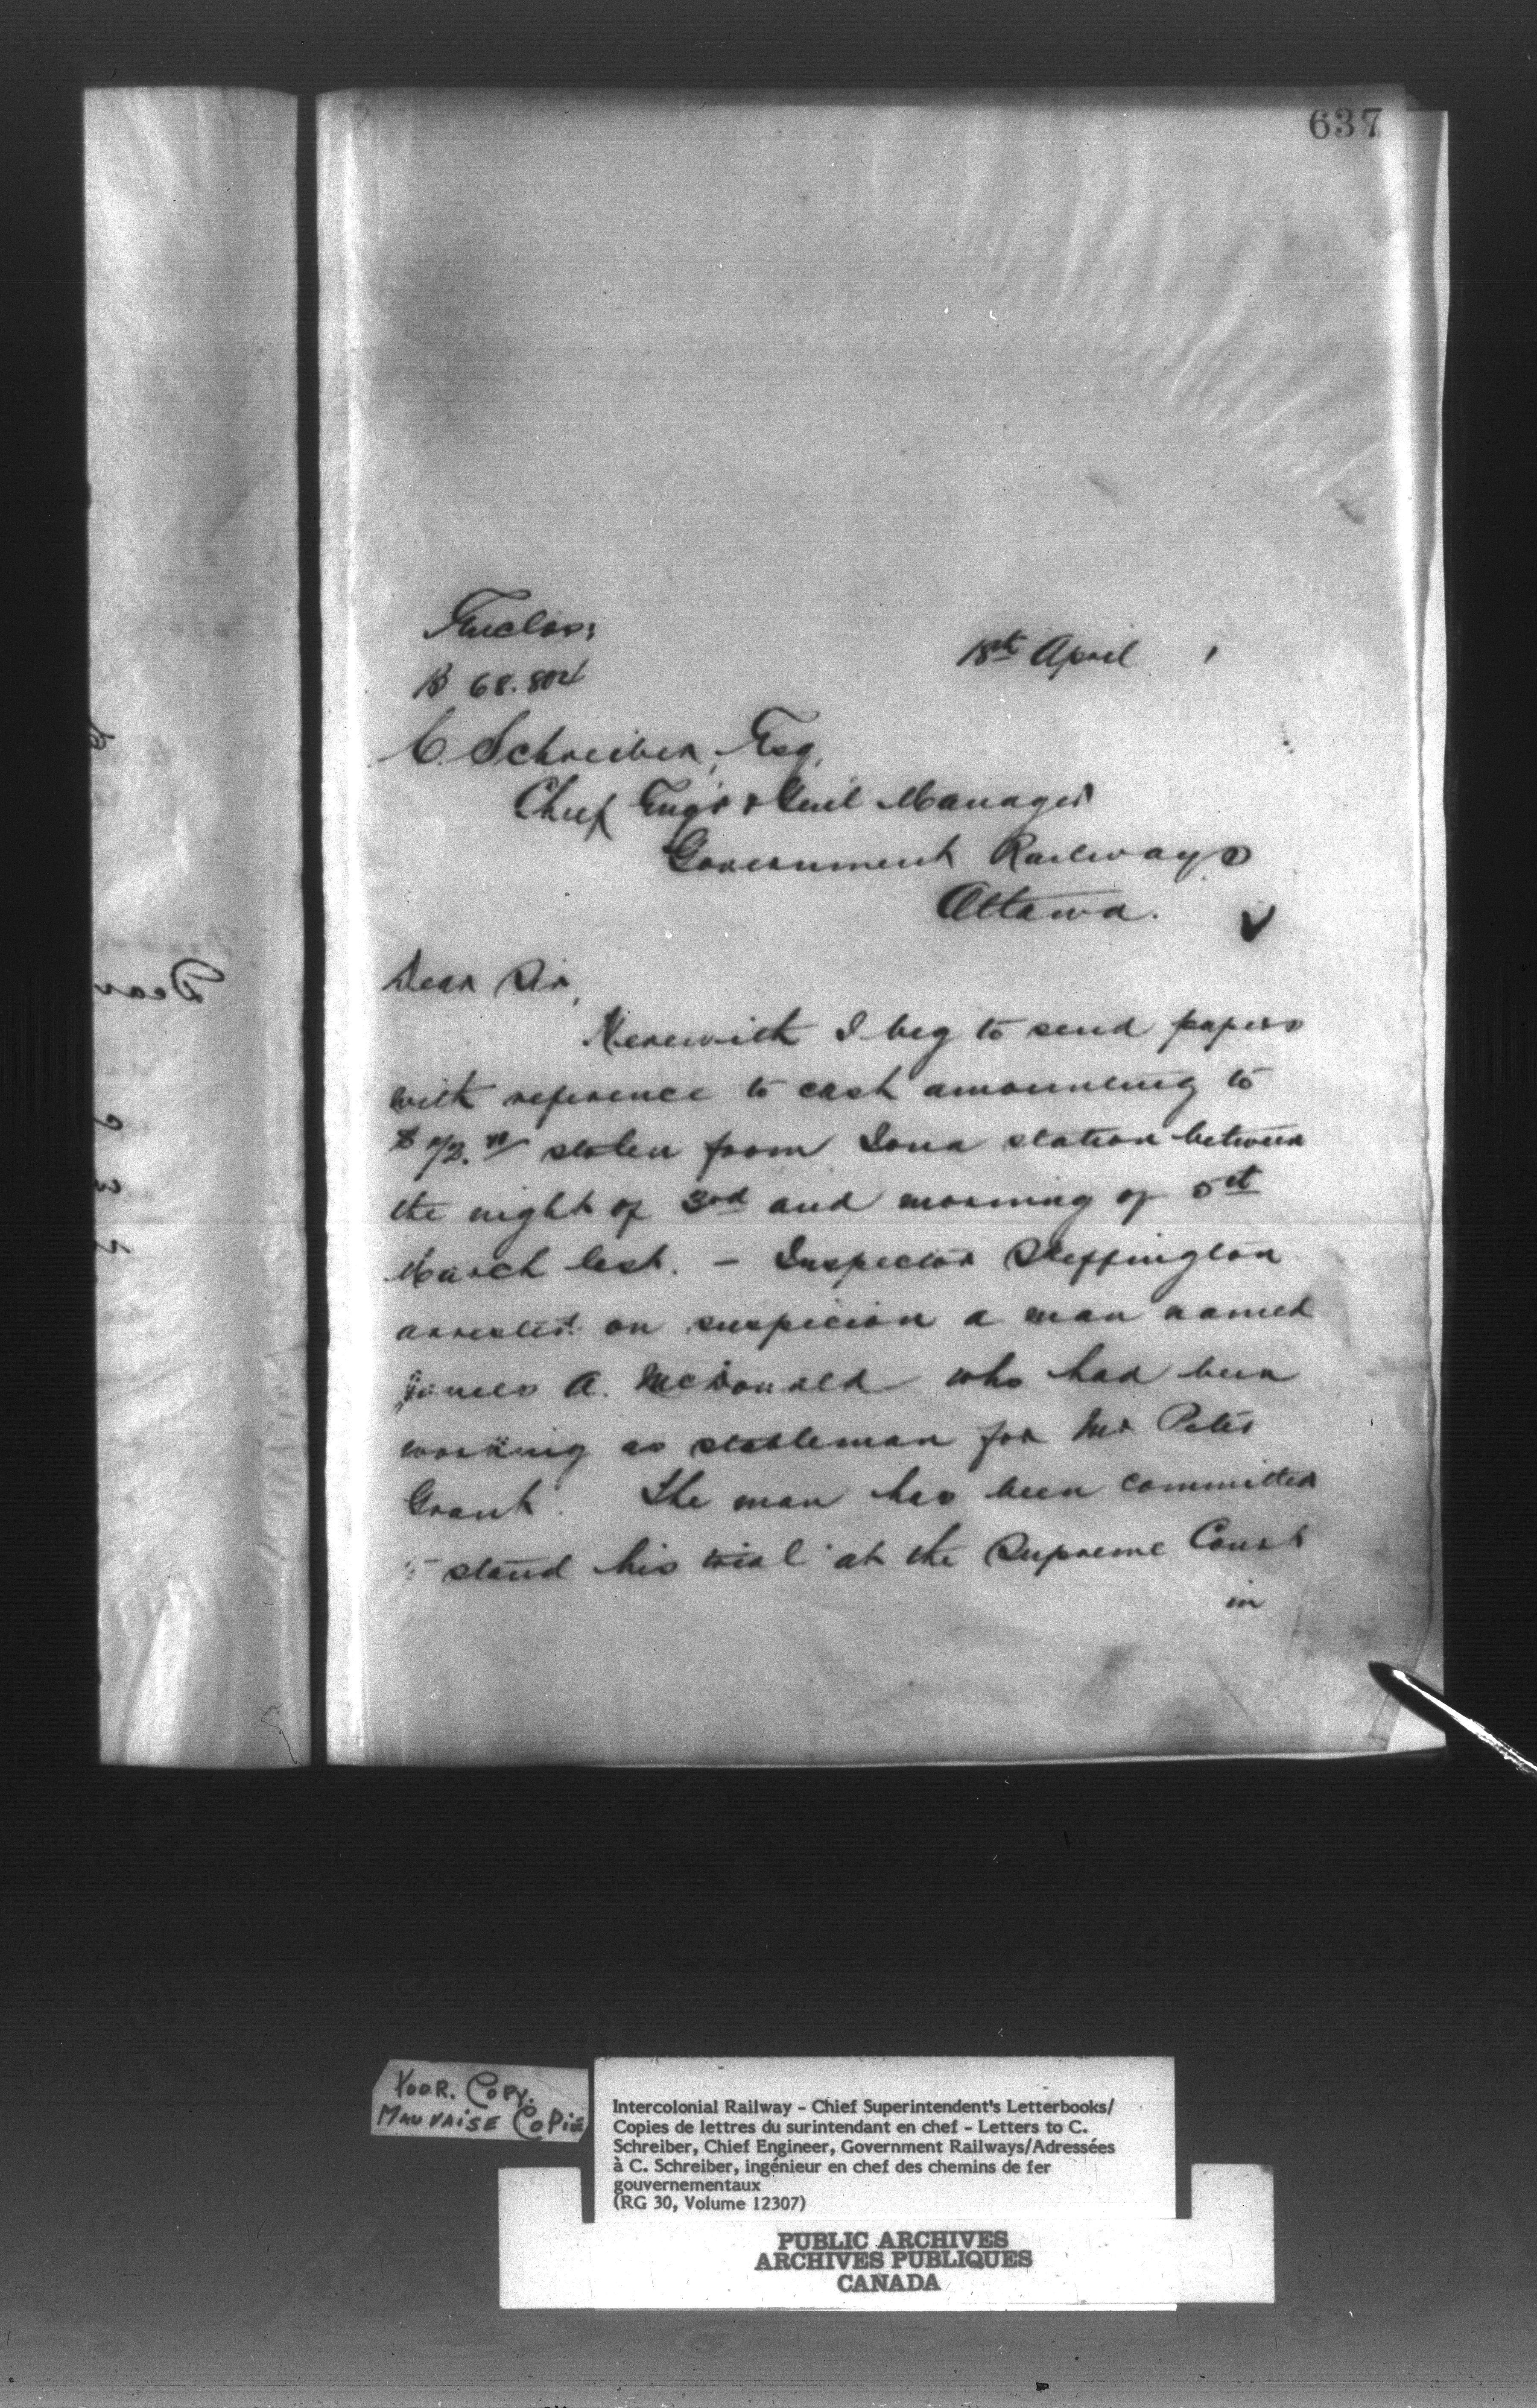 637
Enclos:
18th April
B 68.804
C. Schreiber, Esq,
Chief Engr & Genl Manager
Government Railways
Ottawa.
Dear Sir,
Herewith I beg to send papers
with reference to cash amounting to
stolen from Iona station between
the night of 3rd and morning of 5th
March last. - Inspector Skeffington
arrested on suspicion a man named
James A. McDonald who had been
working as stableman for Mr Peter
Grant. The man has been committed
stand his trial at the Supreme Court
in
Dear
POOR. COPY.
MAUVAISE COPIE
Intercolonial Railway - Chief Superintendent's Letterbooks/
Copies de lettres du surintendant en chef - Letters to C.
Schreiber, Chief Engineer, Government Railways/Adressées
à C. Schreiber, ingénieur en chef des chemins de fer
gouvernementaux
(RG 30, Volume 12307)
PUBLIC ARCHIVES
ARCHIVES PUBLIQUES
CANADA